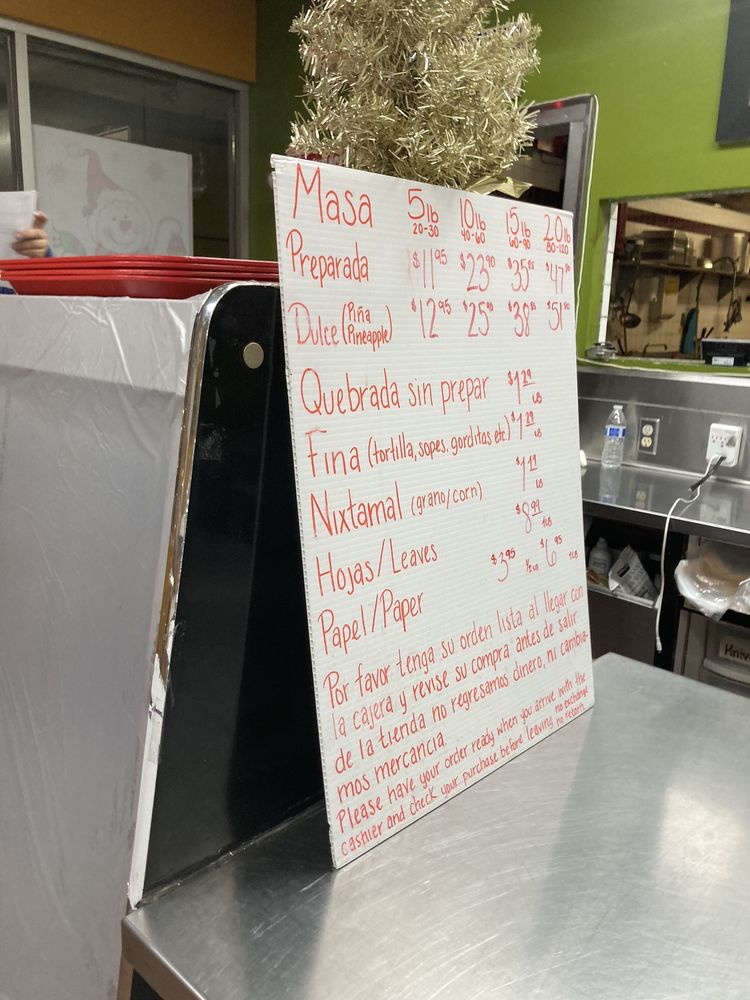 Masa 5lb 10lb 15lb 20lb
20-30 40-60 60-90 80-120
Preparada $11.95 $23.90 $35.85 $47.80
Dulce (Piña Pineapple) $12.95 $25.90 $38.85 $51.80
Quebrada sin prepar $1.29 LB
Fina (tortilla, sopes, gorditas etc.) $1.29 LB
Nixtamal (grano/corn) $1.19 LB
Hojas/Leaves $8.99 1LB
Papel/Paper $3.95 ½ LB $6.95 1LB
Por favor tenga su orden lista al llegar con
la cajera y revise su compra antes de salir
de la tienda no regresamos dinero, ni cambia-
mos mercancia.
Please have your order ready when you arrive with the
cashier and check your purchase before leaving no exchange
no return.